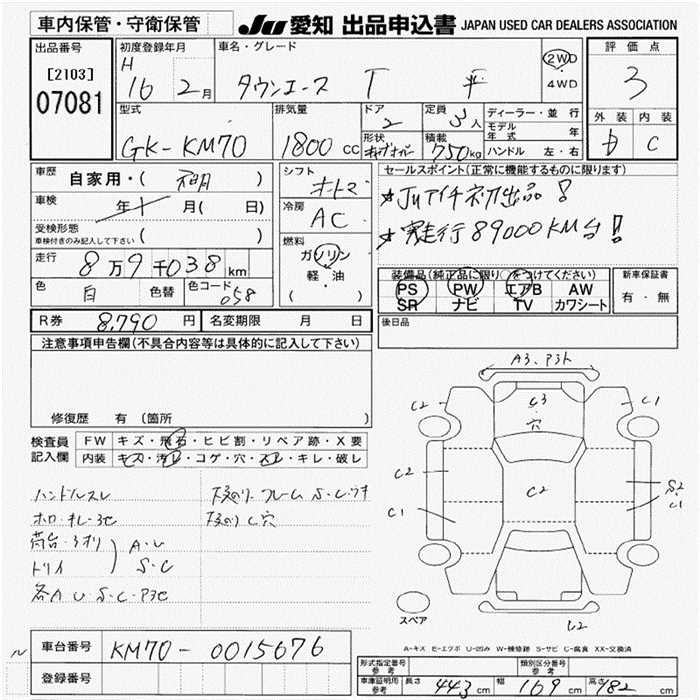 車内保管・守衛保管 JU 愛知 出品申込書 JAPAN USED CAR DEALERS ASSOCIATION
出品番号 初度登録年月 車名・グレード 評価点
[2103] H 16 2月 タウンエース T 2WD・4WD 3
07081
外装 内装
型式 排気量 ドア 2 定員 3人 ディーラー・並行
モデル年式 年
GK-KM70 1800cc 形状 積載 750kg ハンドル 左・右 D C
車歴 自家用・( ) シフト セールスポイント(正常に機能するものに限ります)
車検 年 月( 日) 冷房 AC ★JUアイチ初出品!
受検形態 ( ) ★実走行89000KM台!
車検付きのみ記入して下さい
燃料 ガソリン
走行 8万9千038km 軽・油
( )
色 白 色替 色コード 058
装備品(純正品に限り○をつけてください) 新車保証書
PS PW エアB AW 有・無
SR ナビ TV カワシート
R券 8,790円 名変期限 月 日 後日品
注意事項申告欄(不具合内容等は具体的に記入して下さい)
修復歴 有(箇所 )
検査員 FW キズ・飛石・ヒビ割・リペア跡・X要
記入欄 内装 キズ・汚レ・コゲ・穴・スレ・キレ・破レ
A3、P3ト
C2 C3 C1
穴
C2 C2 S2
C1 C1
ハンドルスレ 下廻り フレーム S・C・サキ
ホロ・キレ・3ヒ 下廻り C穴
荷台・3オリ A・U
トリイ S・C
各A U・S・C・P3ヒ
スペア
L2
A-キズ E-エクボ U-凹み W-補修跡 S-サビ C-腐食 XX-交換済
車台番号 KM70-0015676
登録番号
形式指定番号 参考 類別区分番号 参考
車庫証明用 参考 長さ 443cm 幅 169cm 高さ 182cm